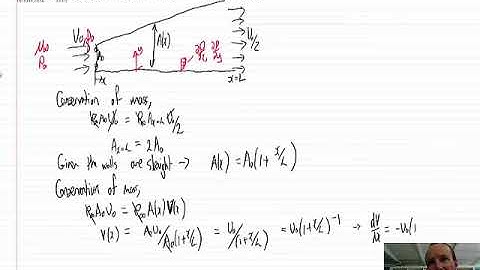 V₀ A₀ A(x) V₀/2
P₀ A₀ y ∂P/∂x ∂P/∂y
→x x=L
Conservation of mass,
ρA₀V₀ = ρA_{x=L} V₀/2
A_{x=L} = 2A₀
Given the walls are straight → A(x) = A₀(1+x/L)
Conservation of mass,
ρA₀V₀ = ρA(x)V(x)
V(x) = A₀V₀/A₀(1+x/L) = V₀/(1+x/L) = V₀(1+x/L)⁻¹ → dV/dx = -V₀(1